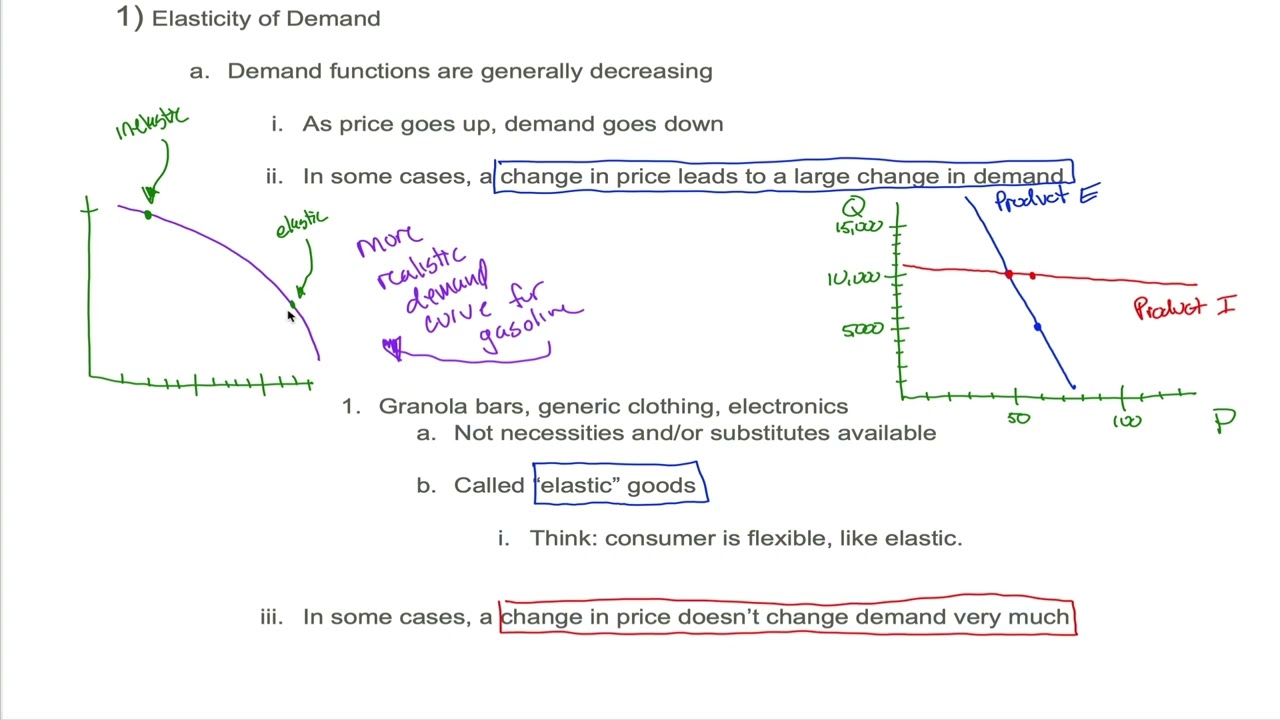 1) Elasticity of Demand
a. Demand functions are generally decreasing
i. As price goes up, demand goes down
ii. In some cases, a change in price leads to a large change in demand
inelastic
elastic
more
realistic
demand
curve for
gasoline
Q
15,000
10,000
5000
50
100
P
Product E
Product I
1. Granola bars, generic clothing, electronics
a. Not necessities and/or substitutes available
b. Called “elastic” goods
i. Think: consumer is flexible, like elastic.
iii. In some cases, a change in price doesn’t change demand very much